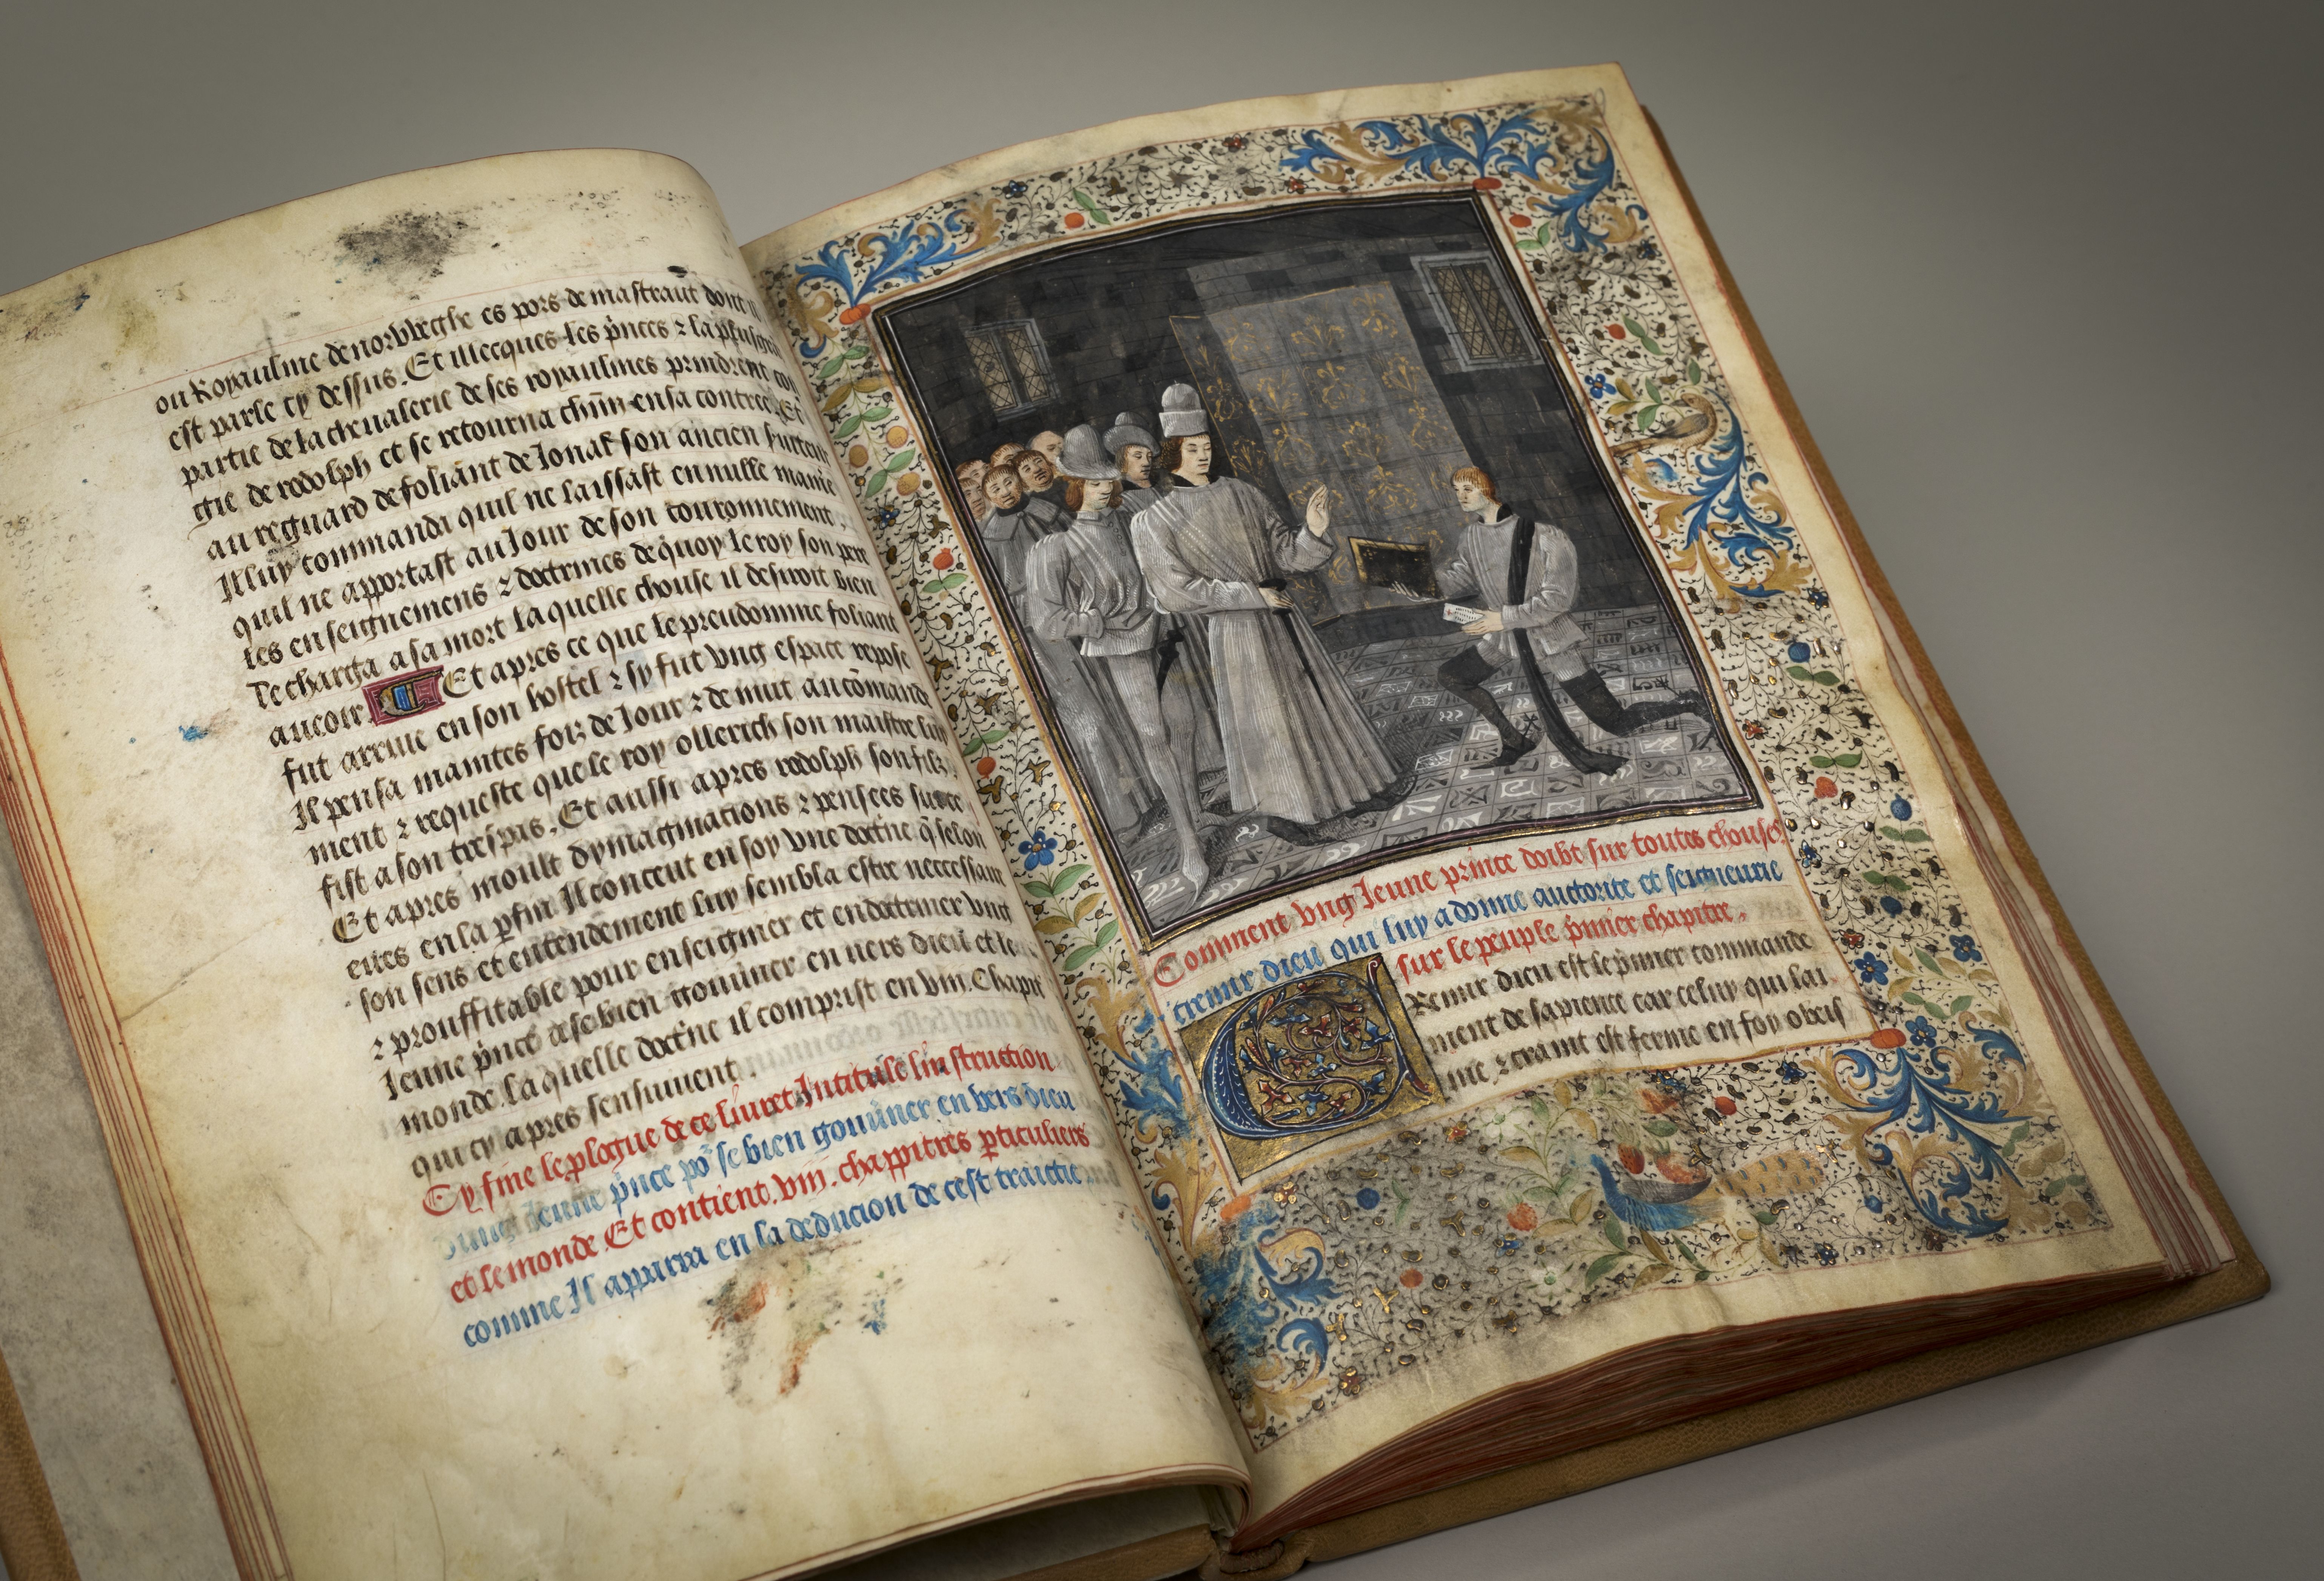 ou Royaulme de norweghe es pors de mastraut dont Il
est parle cy dessus. Et illecques les p̃nces ⁊ la pluisgrãt
partie de la cheualerie de ses royaulmes prindrent con
gie de rodolph et se retourna chũn en sa contree. Et
au reguard de foliant de Ional son ancien seruiteur
Il luy commanda quil ne laissast en nulle manie
quil ne apportast au Iour de son couronnement
les enseignemens ⁊ doctrines de quoy le roy son pere
le charga a sa mort la quelle chouse il desiroit bien
auoir Et apres ce que le preudomme foliant
fut arriue en son hostel ⁊ sy fut vng espace repose
Il pensa maintes foiz de Iour ⁊ de nuit au cõmande
ment ⁊ requeste que le roy ollerich son maistre luy
fist a son trespas. Et aussi apres rodolph son filz.
Et apres moult dymaginations ⁊ pensees
eues en la p̱fin Il conceut en soy vne doctĩne q̃ selon
son sens et entendement luy sembla estre neccessaire
⁊ prouffitable pour enseigner et endoctriner vng
Ieune p̃nce a se bien gouũner en uers dieu et le
monde La quelle doctĩne il comprist en viii. Chapit
qui cy apres sensuiuent.
Cy fine le plogue de ce liuret Intitule linstruction
dung Ieune p̃nce po᷑ se bien gouũner en vers dieu
et le monde Et contient. viii. chappitres p̱ticuliers
comme Il apparra en la deducion de cest traictie
Comment vng Ieune prince doibt sur toutes chouses
cremir dieu qui luy a donne auctorite et seigneurie
sur le peuple p̃mier chapitre.
CRemir dieu est le p̃mier commande
ment de sapience car celuy qui lai
me ⁊ craint est ferme en foy obeis